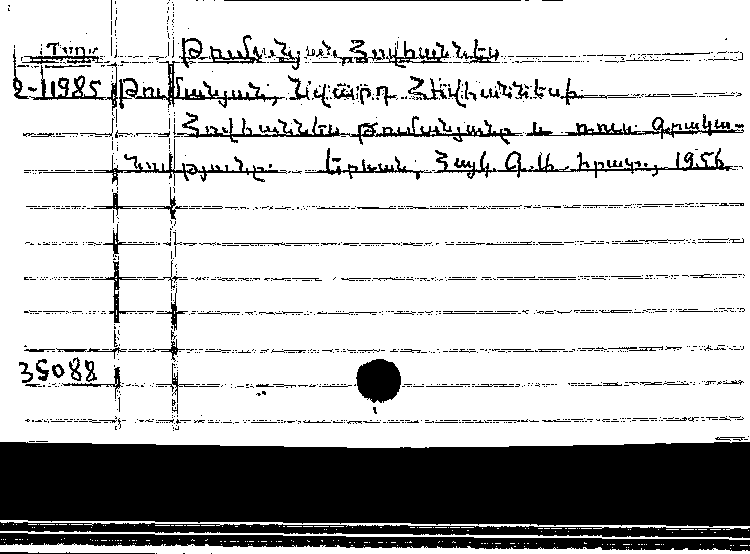 Թումանյան, Հովհաննես
2-11985 Թումանյան, Նվարդ Հովհաննեսի
Հովհաննես Թումանյանը և ռուս գրակա-
նությունը. Երևան, Հայկ. Գ.Ա. հրատ., 1956
35088